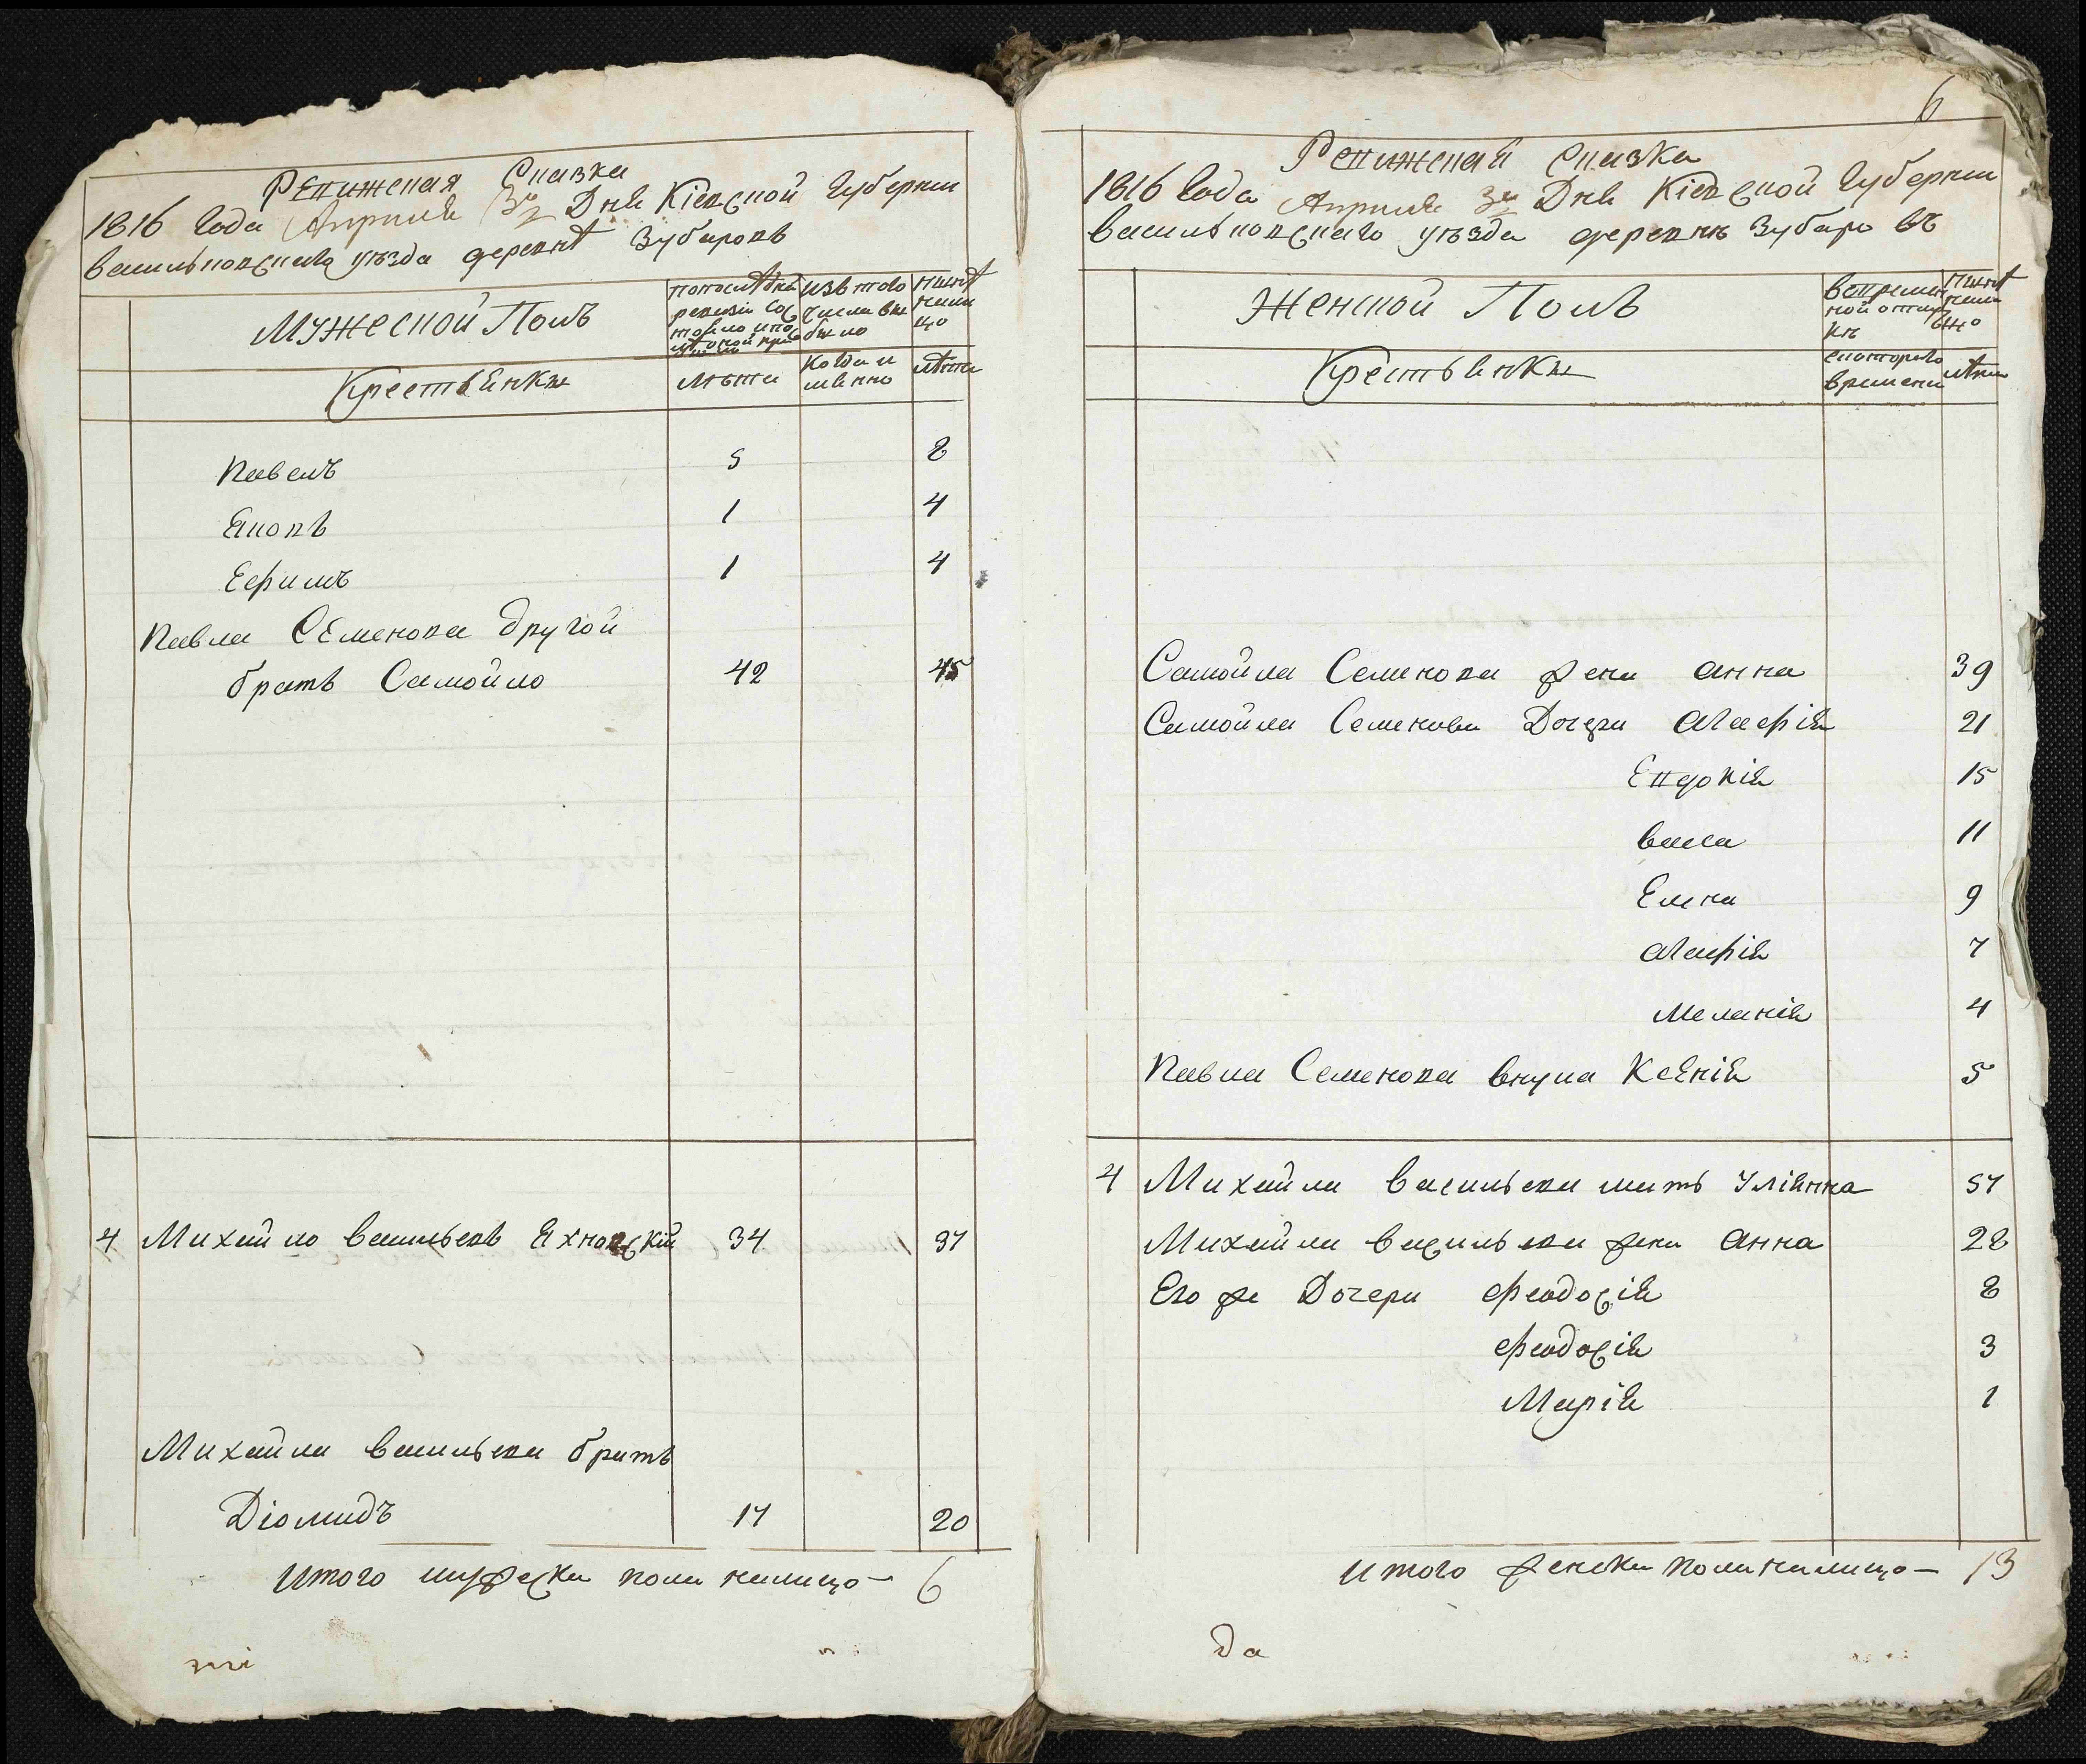 Ревижская Сказка
1816 года Априля 3го Дня Кіевской Губерніи
васильковскаго уѣзда деревнѣ Зубаровъ
Мужеской Полъ
попослѣдней ревизіи сос
тояло ипос
изъ того
числа вы
было
нынѣ
нали
цо
Крестьянкы
лѣта
когда и
менно
лѣта
Павелъ 5 8
Яковъ 1 4
Ефимъ 1 4
Павла Семенова другой
братъ Самойло 42 45
4 Михайло васильевъ Яхновскій 34 37
Михайла васильева братъ
Діомидъ 17 20
Итого мужеска пола налицо — 6
6
Ревижская Сказка
1816 Года Априля 3го Дня Кіевской Губерніи
васильковскаго уѣзда деревнѣ Зубаро въ
Женской Полъ
Времен
ной отлуч
кѣ
нынѣ
нали
цо
Крестьянкы
скотораго
времени
лѣта
Самойла Семенова жена анна 39
Самойла Семенова Дочери агафія 21
Евдокія 15
васса 11
Елена 9
агафія 7
Меланія 4
Павла Семенова внука Ксенія 5
4 Михайла васильева мать Уліянна 57
Михайла васильева жена анна 28
Его же Дочери Феодосія 8
Феодосія 3
Марія 1
Итого женска пола налицо — 13
да